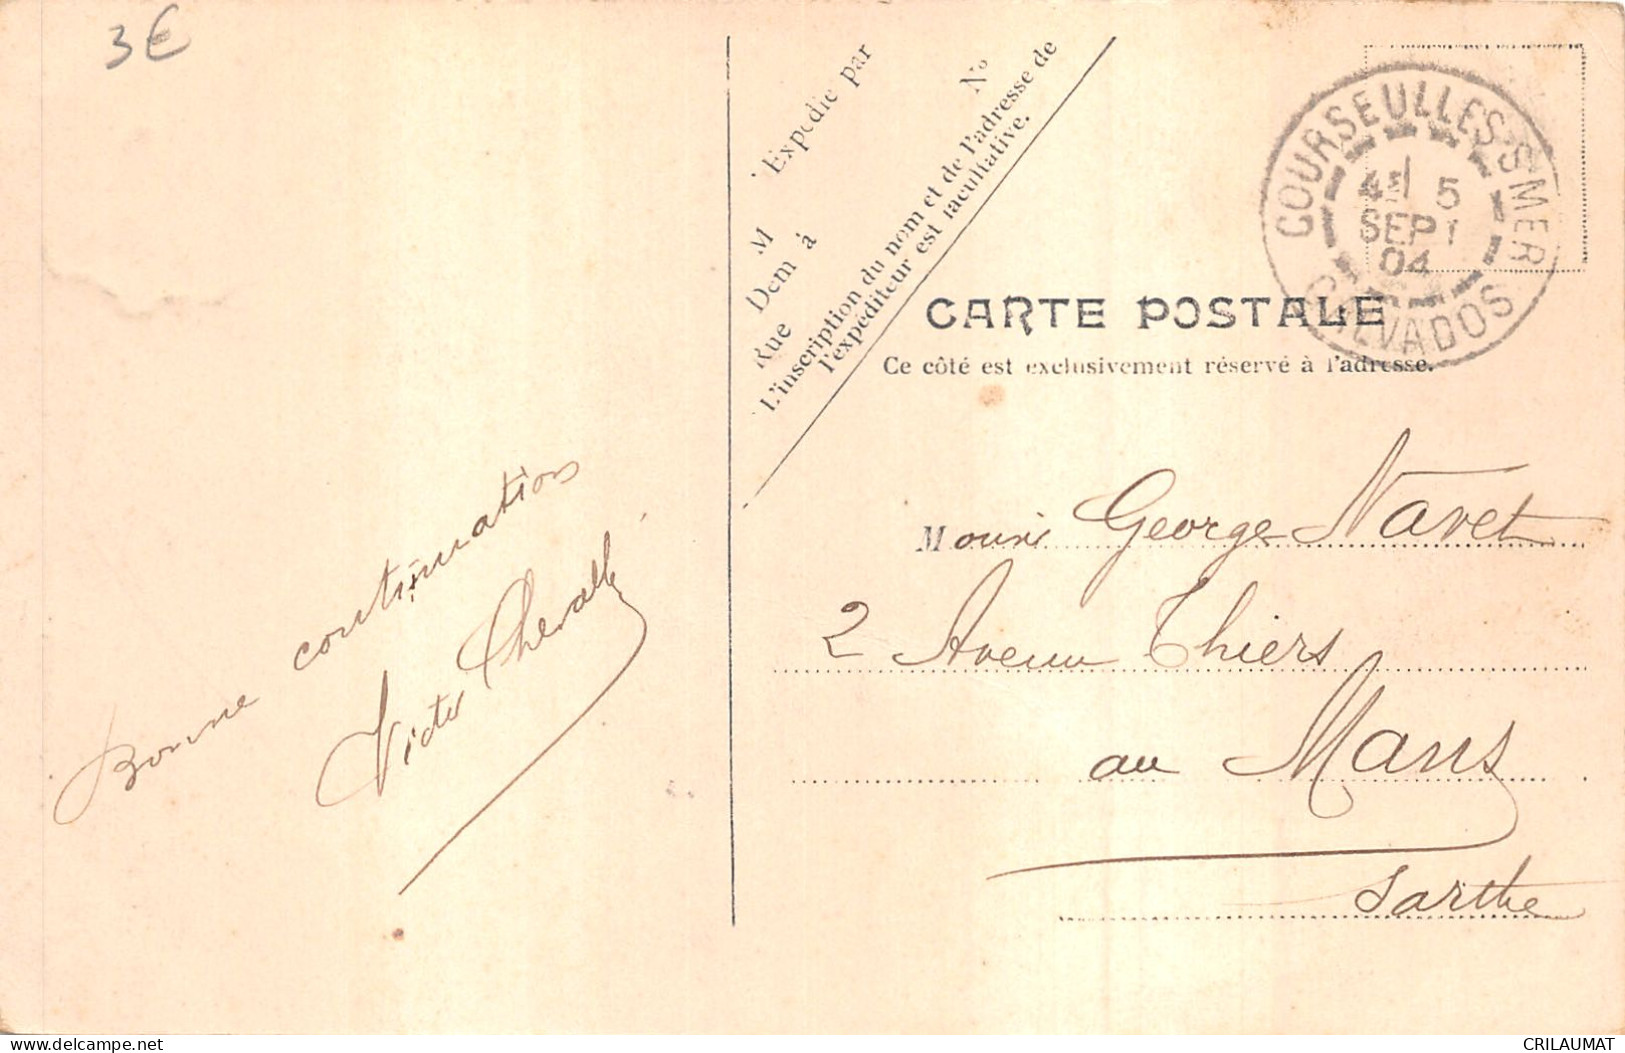 3€
Expédié par
M
Dem à
Rue
N°
L'inscription du nom et de l'adresse de
l'expéditeur est facultative.
COURSEULLES-S-MER
5
SEPT
04
CALVADOS
CARTE POSTALE
Ce côté est exclusivement réservé à l'adresse.
George Navet
2 Avenue Thiers
au Mans
Sarthe
Bonne continuation
Victor
delcampe.net
CRILAUMAT